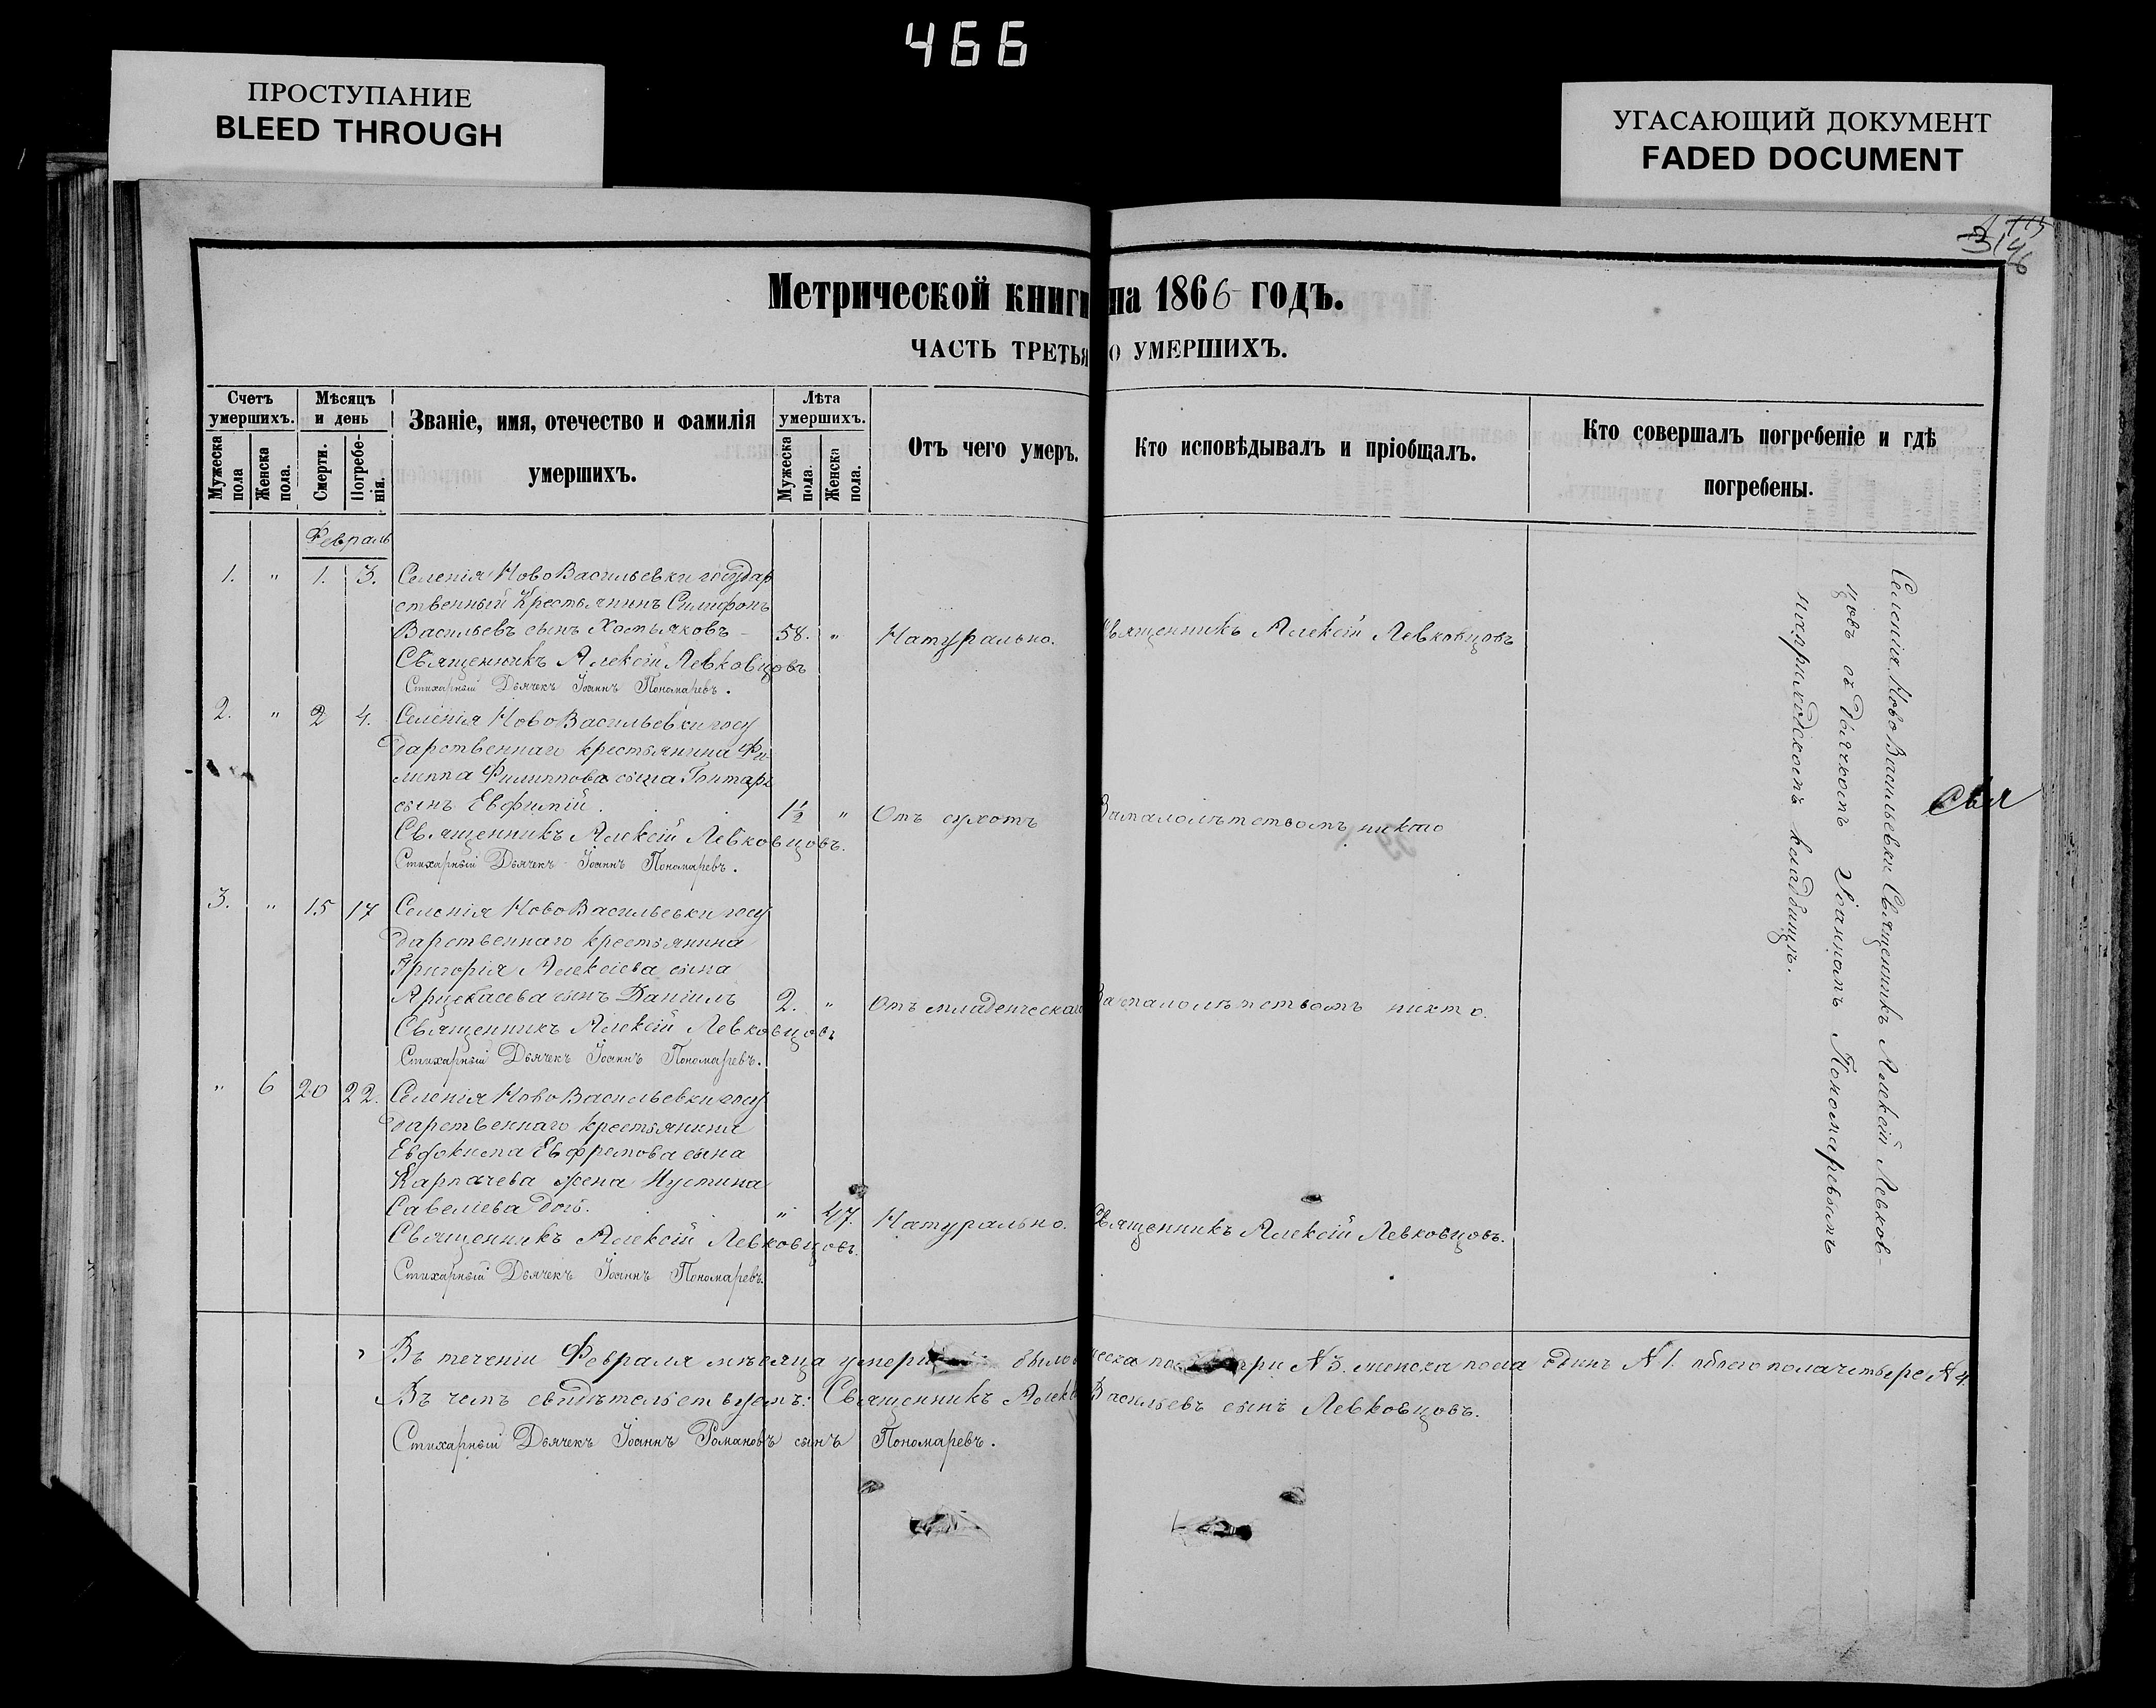 466
ПРОСТУПАНИЕ
BLEED THROUGH
УГАСАЮЩИЙ ДОКУМЕНТ
FADED DOCUMENT
Метрической книги на 1866 годъ.
ЧАСТЬ ТРЕТЬЯ О УМЕРШИХЪ.
Счетъ умершихъ.
Мужеска пола
Женска пола.
Мѣсяцъ и день
Смерти.
Погребенія.
Званіе, имя, отечество и фамилія
умершихъ.
Лѣта умершихъ.
Мужеска пола.
Женска пола.
Отъ чего умеръ.
Кто исповѣдывалъ и пріобщалъ.
Кто совершалъ погребеніе и гдѣ
погребены.
Февраль
1. " 1. 3. Селенія Ново Васильевки государ
ственный Крестьянинъ
Васильевъ сынъ Хомяковъ - 58. " Натурально. Священникъ Алексій Левковцовъ
Священникъ Алексій Левковцовъ
Стихарный Дьячекъ Іоаннъ Пономаревъ.
2. " 2 4. Селенія Ново Васильевки госу
дарственнаго крестьянина Фи
липпа Филиппова сына Гонтаря
сынъ Евфимій. 1½ " Отъ сухотъ За малолѣтствомъ никто
Священникъ Алексій Левковцовъ.
Стихарный Дьячекъ Іоаннъ Пономаревъ.
3. " 15 17 Селенія Ново Васильевки госу
дарственнаго крестьянина
Григорія Алексіева сына
сынъ Даніилъ 2. " Отъ младенческой За малолѣтствомъ никто.
Священникъ Алексій Левковцовъ
Стихарный Дьячекъ Іоаннъ Пономаревъ.
" 6 20 22. Селенія Ново Васильевки госу
дарственнаго крестьянина
Евдокима Ефремова сына
Карпачева жена Иустина
Савелиева дочь. " 47. Натурально. Священникъ Алексій Левковцовъ.
Священникъ Алексій Левковцовъ.
Стихарный Дьячекъ Іоаннъ Пономаревъ.
Селенія Ново Васильевки Священникъ Алексій Левков-
цовъ съ Дьячкомъ Іоанномъ Пономаревымъ
на приходскомъ кладбищѣ.
Свя
Въ теченіи Февраля мѣсяца было три № 3. женска пола одинъ № 1. обоего пола четыре № 4.
Въ чемъ свидѣтельствуемъ: Священникъ Алексій Васильевъ сынъ Левковцовъ.
Стихарный Дьячекъ Іоаннъ Романовъ сынъ Пономаревъ.